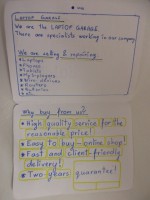 Laptop Garage
We are the LAPTOP GARAGE
There are specialists working in our company
We are selling & repairing
* Laptops
* Tablets
* Routers
Why buy from us?
* High quality service for the
reasonable price!
* Easy to buy - online shop!
* Fast and client-friendly
delivery!
* Two years guarantee!